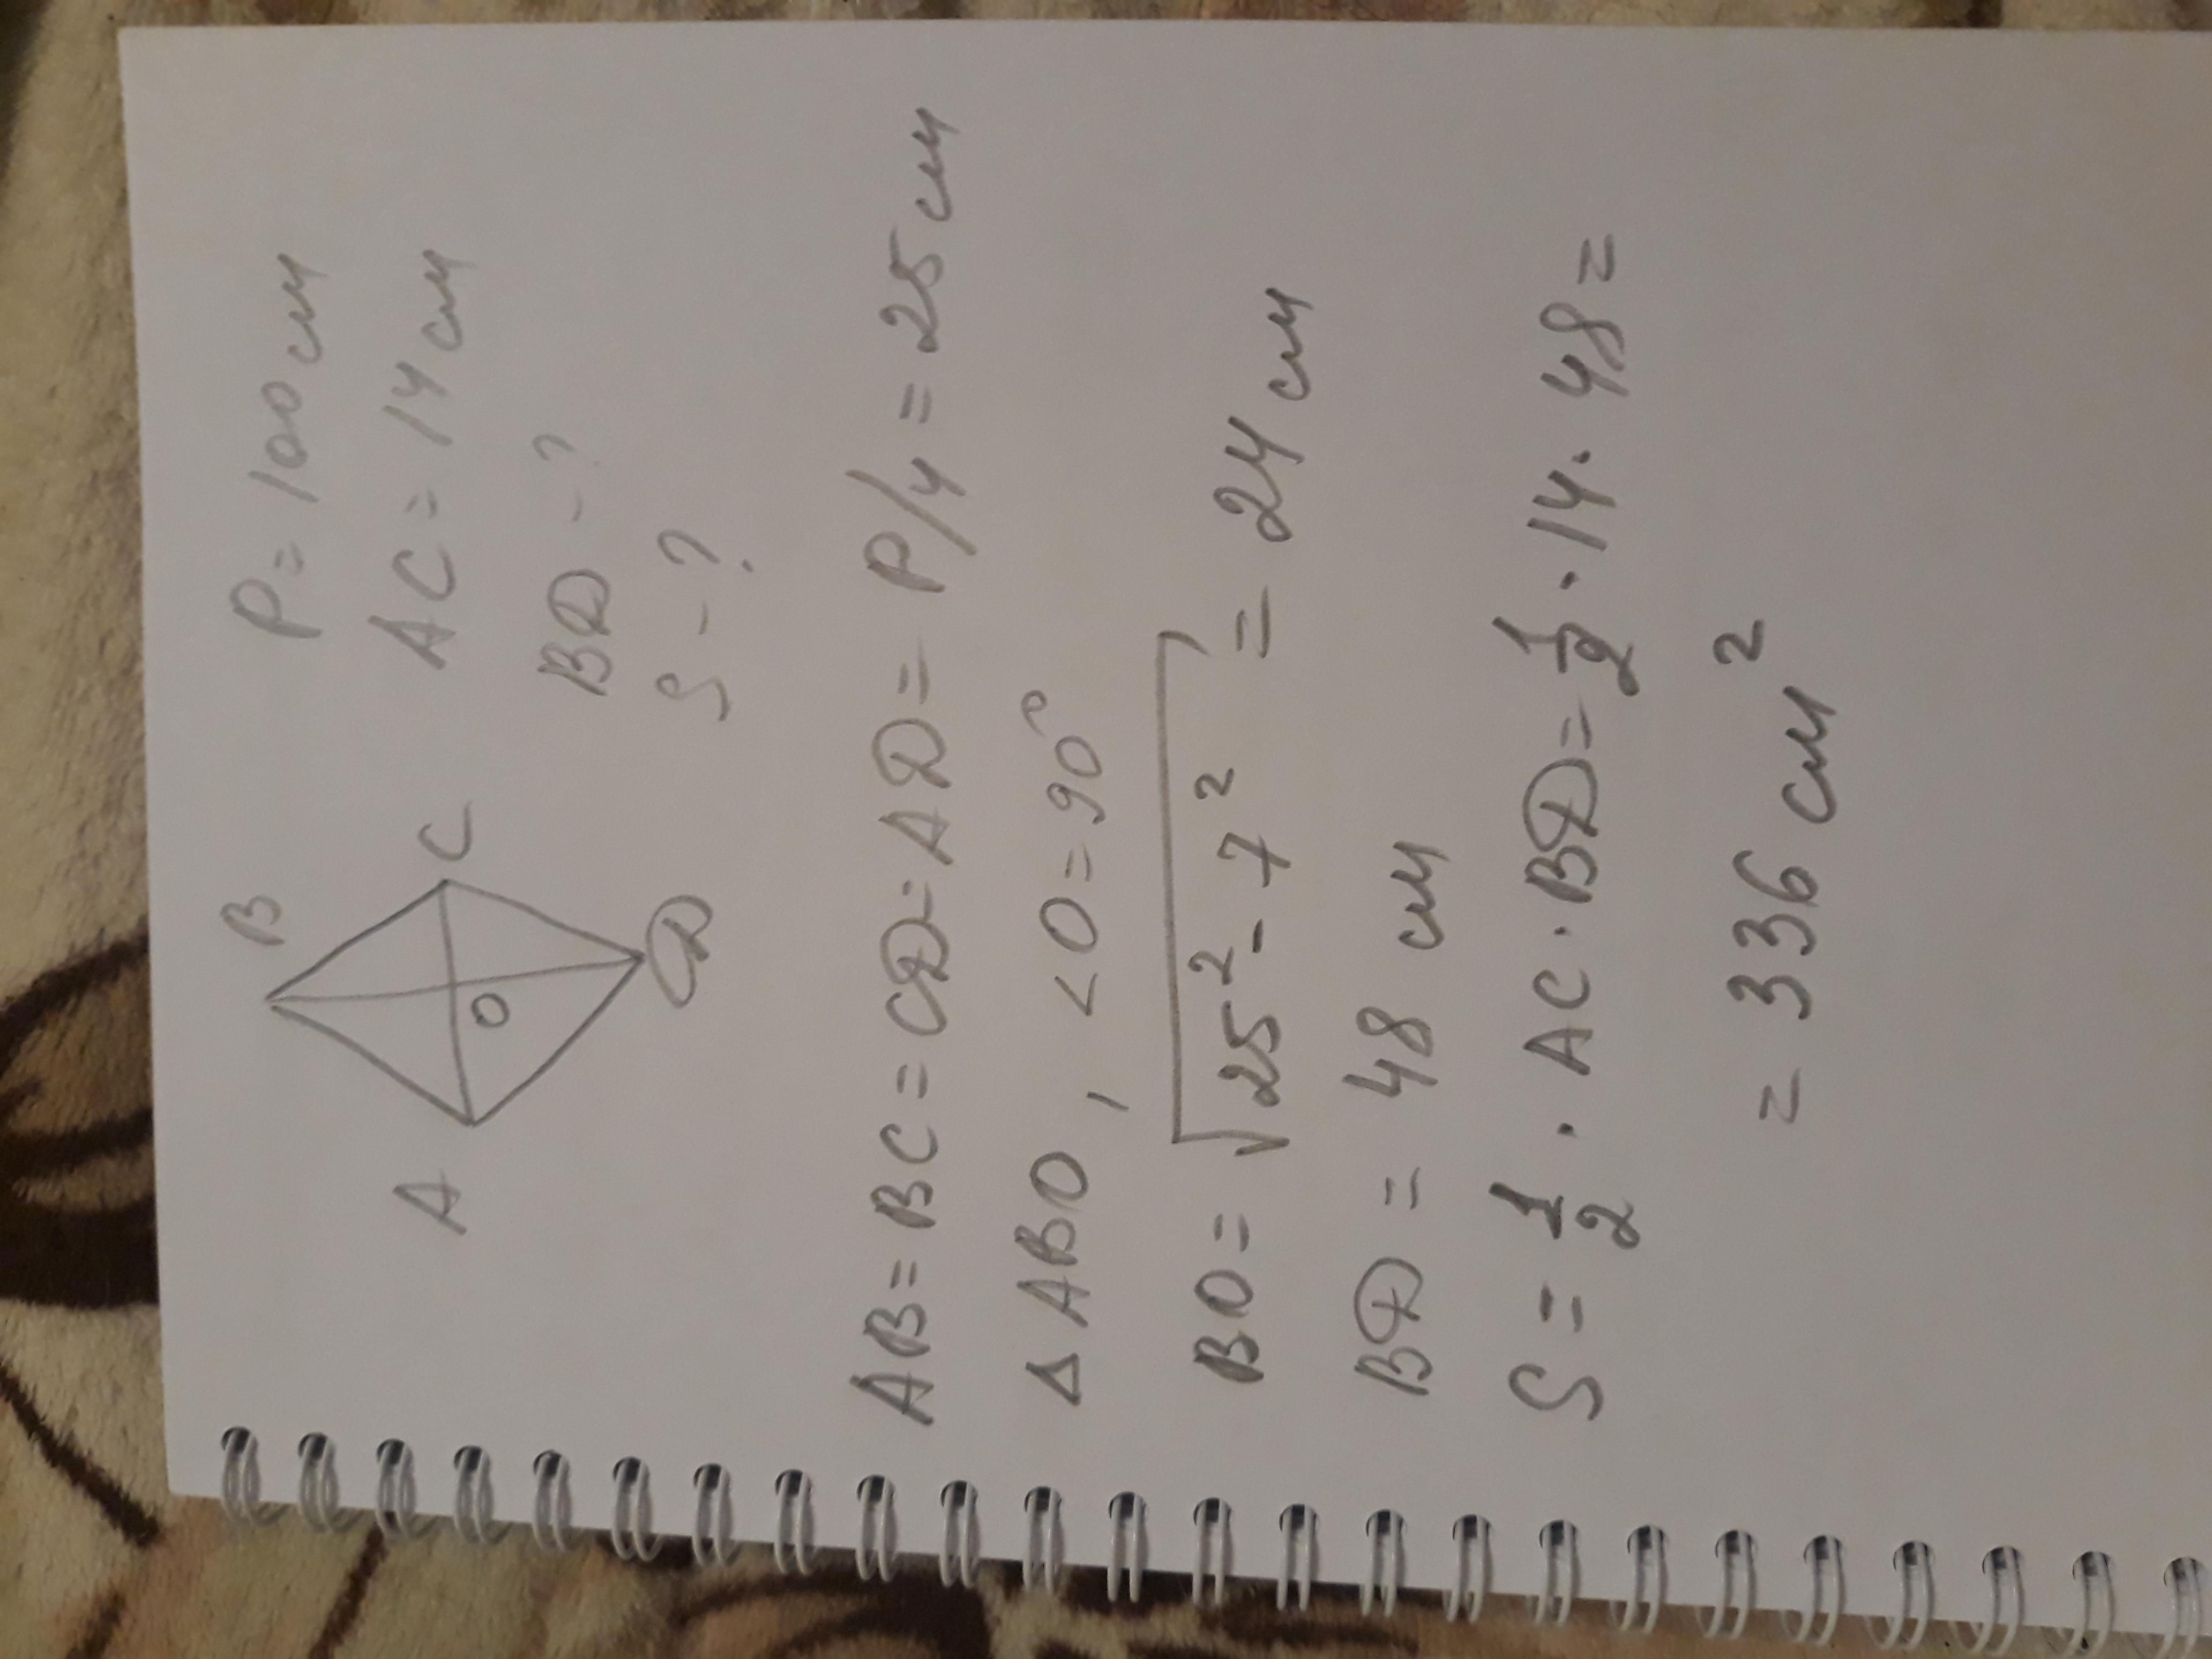 B
A
C
O
D
P = 100 см
AC = 14 см
BD - ?
S - ?
AB = BC = CD = AD = P/4 = 25 см
Δ ABO, <O = 90°
BO = √25² - 7² = 24 см
BD = 48 см
S = 1/2 · AC · BD = 1/2 · 14 · 48 =
= 336 см²